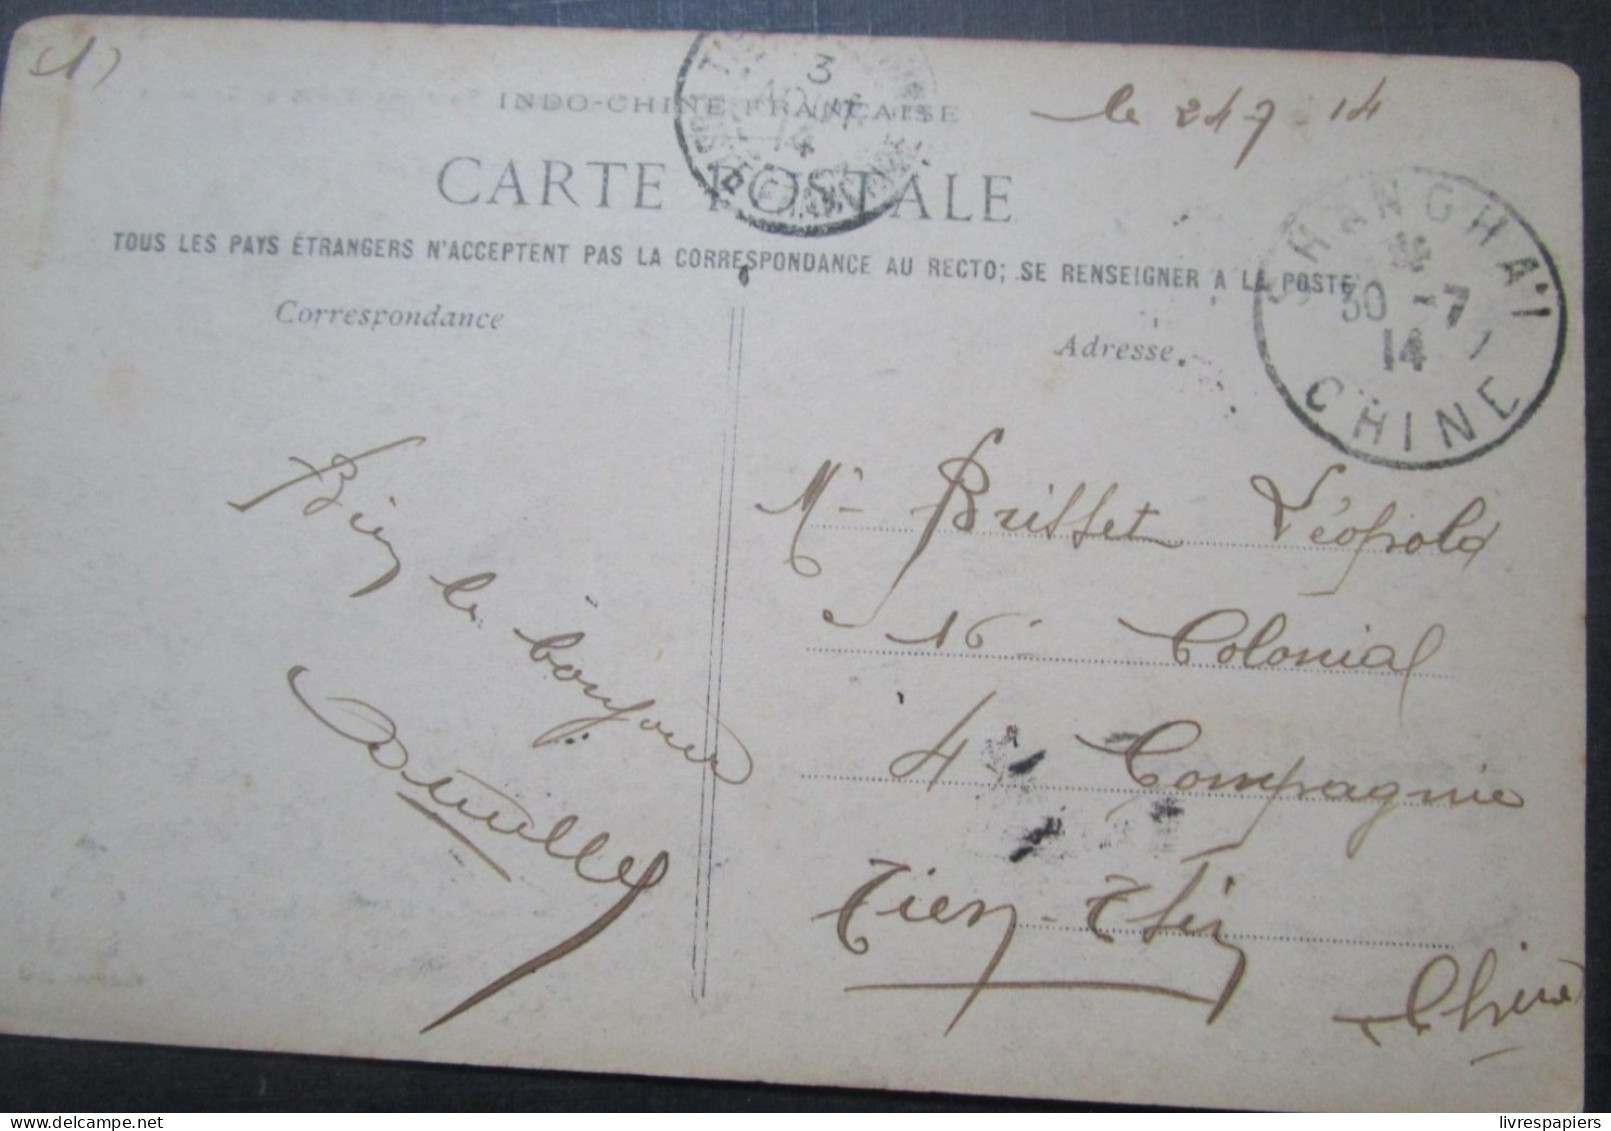 (1)
INDO-CHINE FRANÇAISE
le 24-7-14
3
AOUT
14
CARTE POSTALE
SHANG-HAÏ
30 -7
14
CHINE
TOUS LES PAYS ÉTRANGERS N'ACCEPTENT PAS LA CORRESPONDANCE AU RECTO; SE RENSEIGNER A LA POSTE
Correspondance
Adresse
Bien le bonjour
Mr Brisset Léopold
16e Colonial
4e Compagnie
Tien-Tsin
Chine
livrespapiers.com